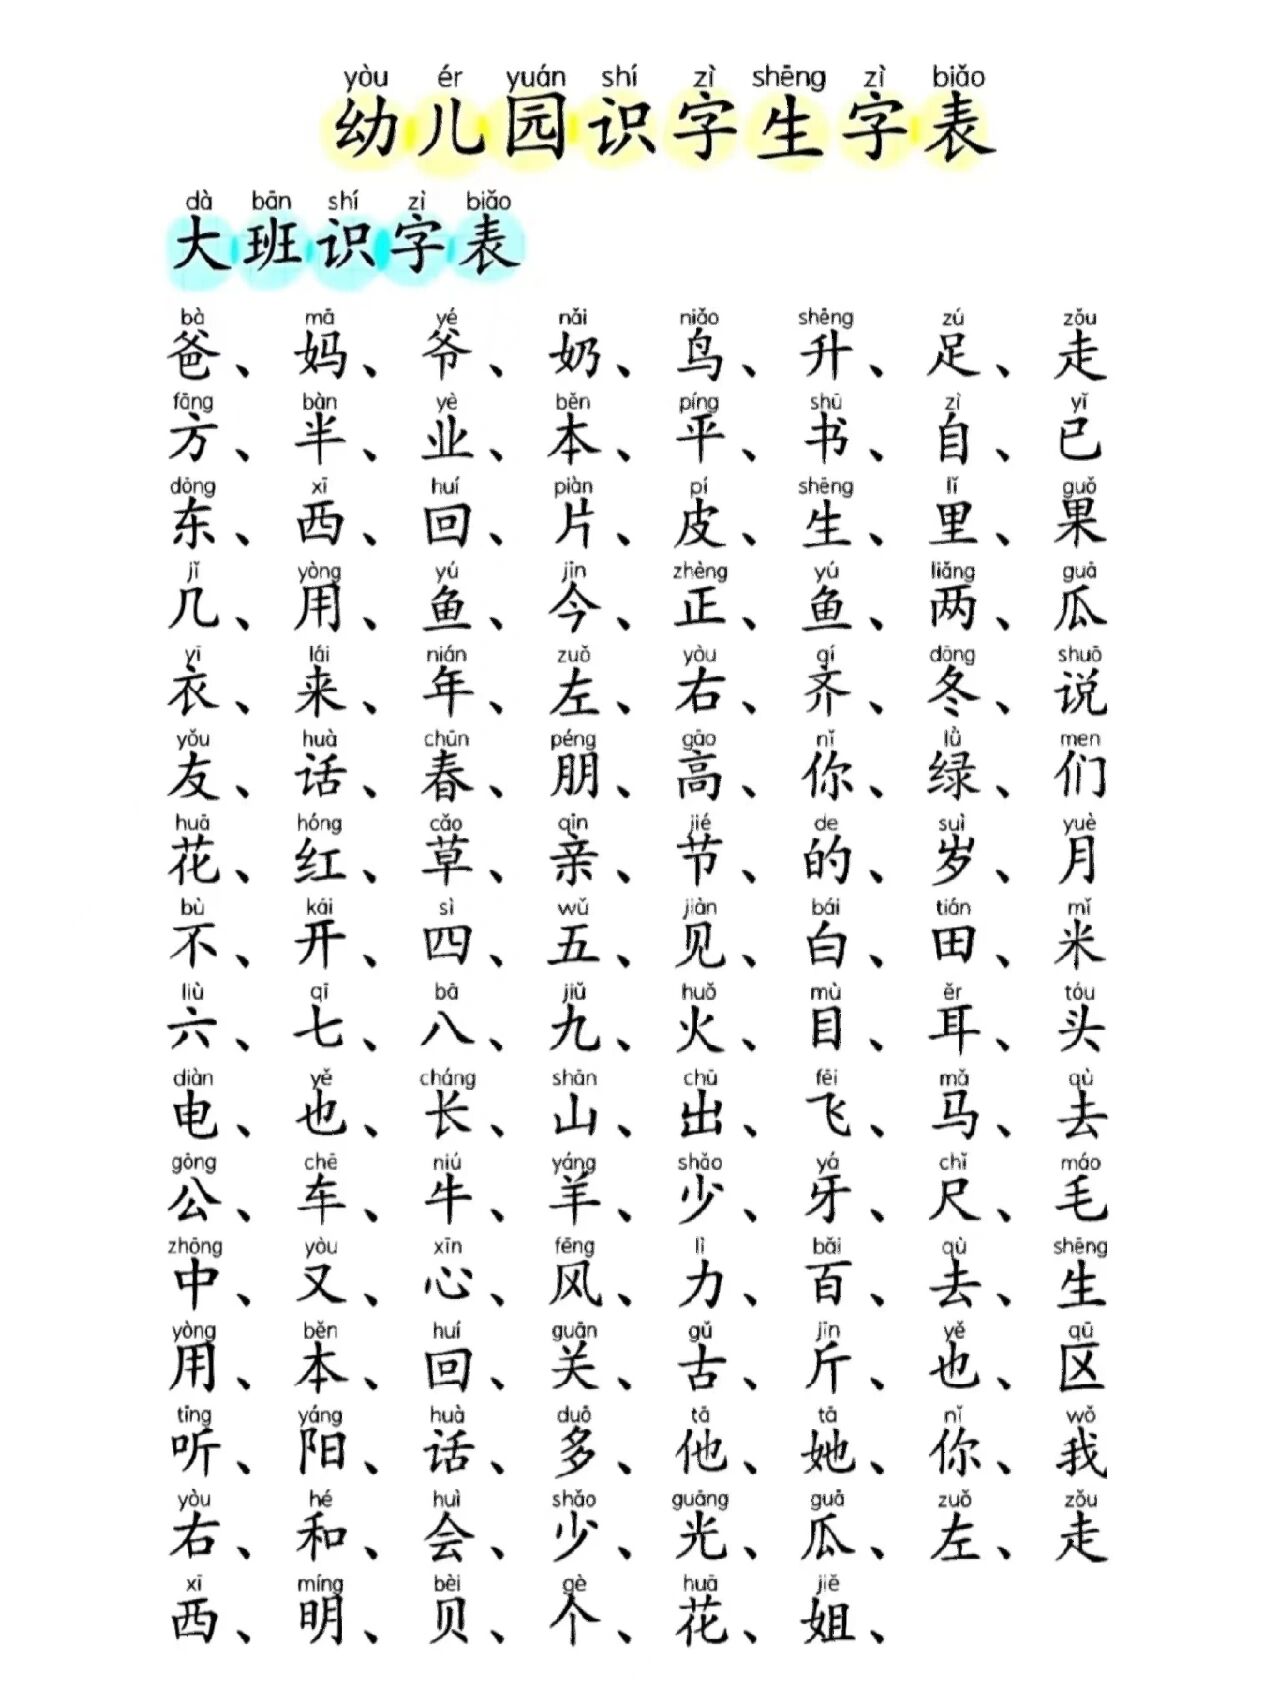 yòu ér yuán shí zì shēng zì biǎo
幼儿园识字生字表
dà bān shí zì biǎo
大班识字表
bà mā yé nǎi niǎo shēng zú zǒu
爸、妈、爷、奶、鸟、升、足、走
fāng bàn yè běn píng shū zì yǐ
方、半、业、本、平、书、自、已
dōng xī huí piàn pí shēng lǐ guǒ
东、西、回、片、皮、生、里、果
jǐ yòng yú jīn zhèng yú liǎng guā
几、用、鱼、今、正、鱼、两、瓜
yī lái nián zuǒ yòu qí dōng shuō
衣、来、年、左、右、齐、冬、说
yǒu huà chūn péng gāo nǐ lǜ men
友、话、春、朋、高、你、绿、们
huā hóng cǎo qīn jié de suì yuè
花、红、草、亲、节、的、岁、月
bù kāi sì wǔ jiàn bái tián mǐ
不、开、四、五、见、白、田、米
liù qī bā jiǔ huǒ mù ěr tóu
六、七、八、九、火、目、耳、头
diàn yě cháng shān chū fēi mǎ qù
电、也、长、山、出、飞、马、去
gōng chē niú yáng shǎo yá chǐ máo
公、车、牛、羊、少、牙、尺、毛
zhōng yòu xīn fēng lì bǎi qù shēng
中、又、心、风、力、百、去、生
yòng běn huí guān gǔ jīn yě qū
用、本、回、关、古、斤、也、区
tīng yáng huà duō tā tā nǐ wǒ
听、阳、话、多、他、她、你、我
yòu hé huì shǎo guāng guā zuǒ zǒu
右、和、会、少、光、瓜、左、走
xī míng bèi gè huā jiě
西、明、贝、个、花、姐、